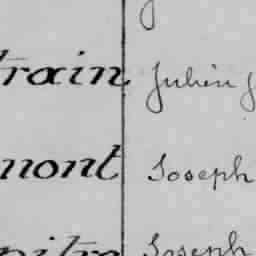 train Julien J
mont Joseph
pitre Joseph